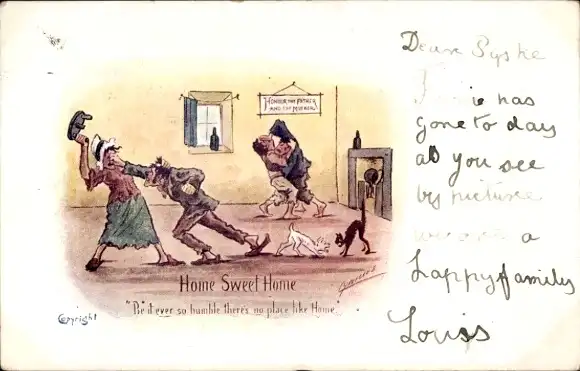 HONOUR THY FATHER
AND THY MOTHER
Home Sweet Home
"Be it ever so humble there's no place like Home.
Copyright
Dear Syske
is has
gone to day
as you see
by picture
a
happy family
Louis